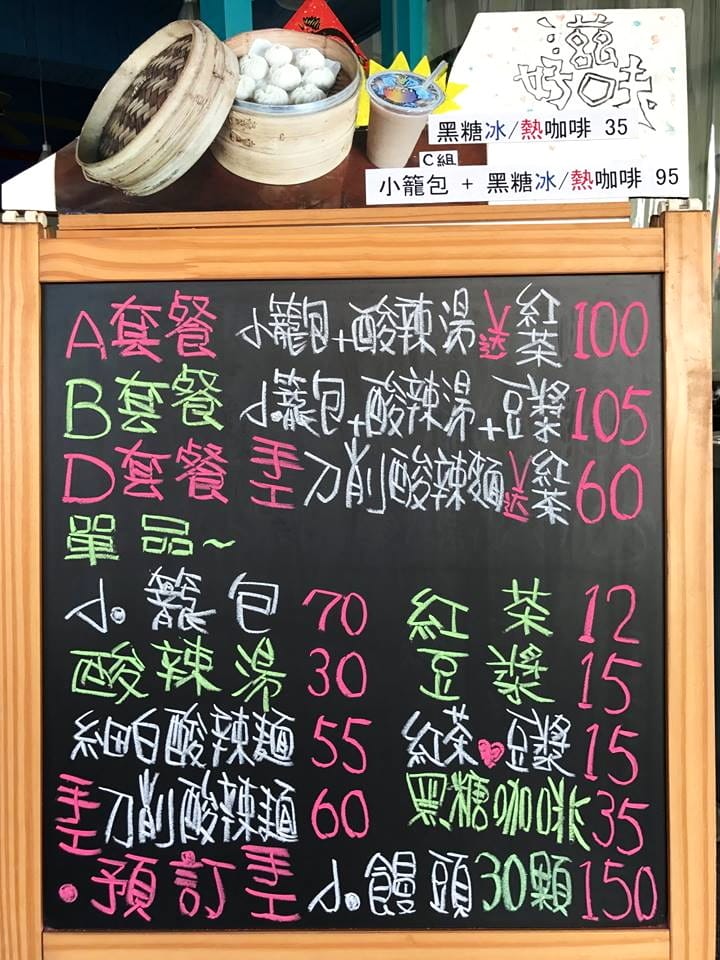 好滋味
黑糖冰/熱咖啡 35
C組
小籠包 + 黑糖冰/熱咖啡 95
A套餐 小籠包+酸辣湯送紅茶100
B套餐 小籠包+酸辣湯+豆漿105
D套餐 手工刀削酸辣麵送紅茶60
單品~
小籠包 70 紅茶 12
酸辣湯 30 豆漿 15
細白酸辣麵 55 紅茶♥豆漿 15
手工刀削酸辣麵 60 黑糖咖啡35
•預訂手工小饅頭30顆150